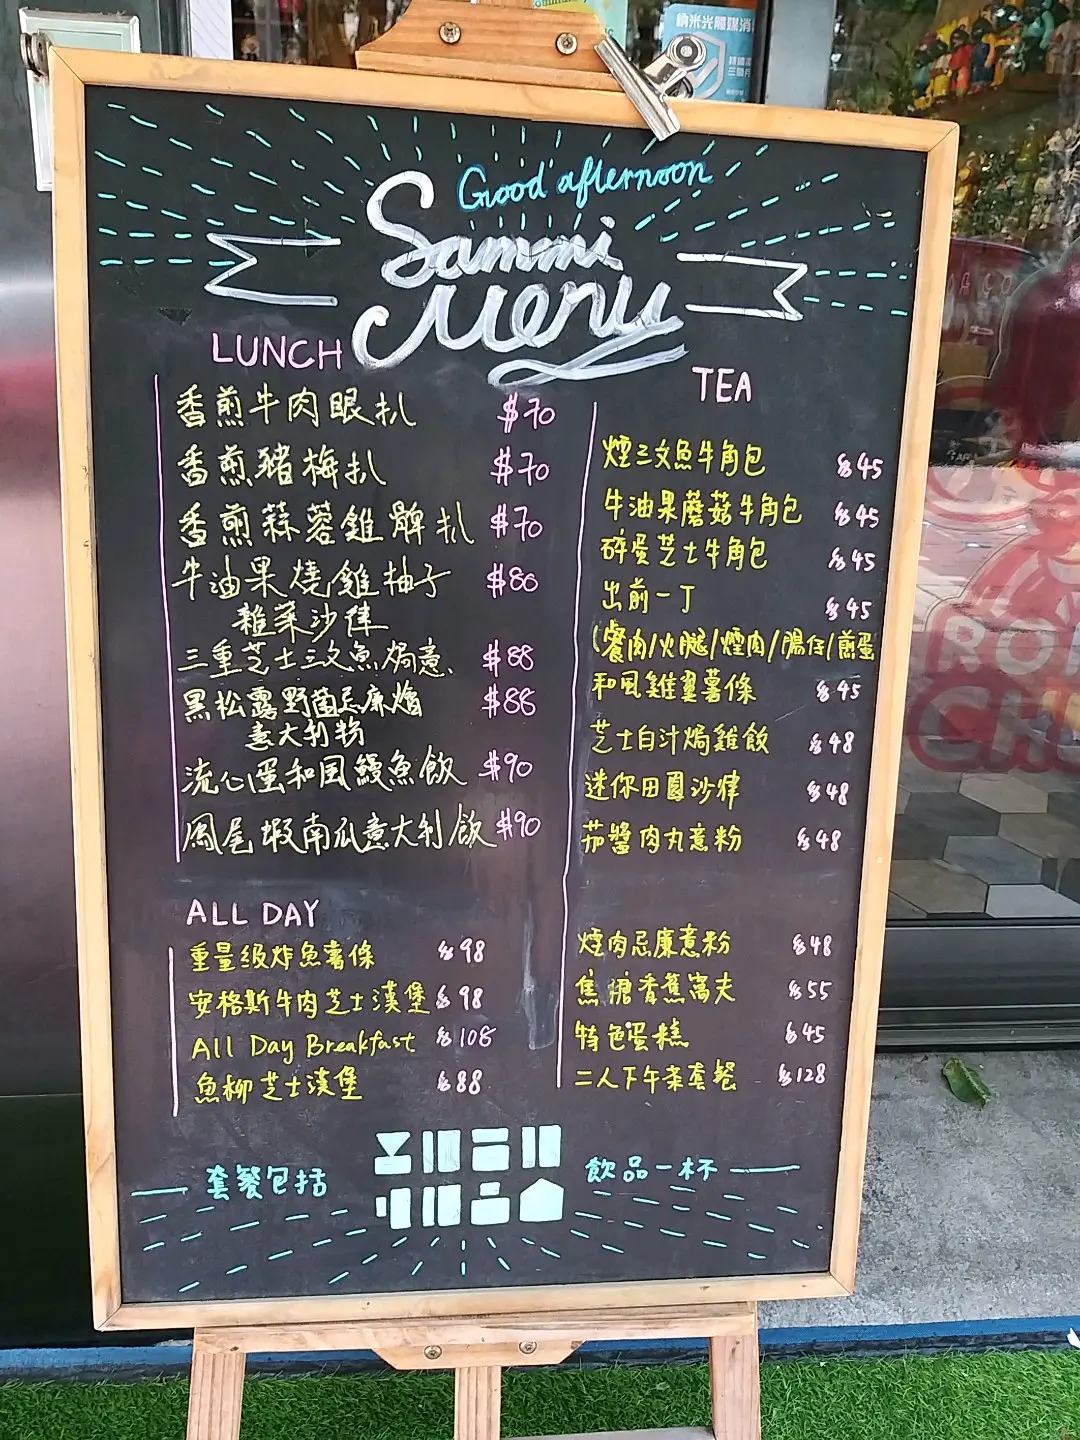 納米光觸媒消
Good afternoon
Sammi
Menu
LUNCH
香煎牛肉眼扒 $70
香煎豬梅扒 $70
香煎蒜蓉雞髀扒 $70
牛油果燒雞柚子 $80
雜菜沙律
三重芝士三文魚焗意 $88
黑松露野菌忌廉燴 $88
意大利物
流心蛋和風鰻魚飯 $90
鳳尾蝦南瓜意大利飯 $90
ALL DAY
重量級炸魚薯條 $98
安格斯牛肉芝士漢堡 $98
All Day Breakfast $108
魚柳芝士漢堡 $88
TEA
煙三文魚牛角包 $45
牛油果蘑菇牛角包 $45
碎蛋芝士牛角包 $45
出前一丁 $45
(餐肉/火腿/煙肉/腸仔/煎蛋
和風雞翼薯條 $45
芝士白汁焗雞飯 $48
迷你田園沙律 $48
茄醬肉丸意粉 $48
煙肉忌廉意粉 $48
焦糖香蕉窩夫 $55
特色蛋糕 $45
二人下午茶套餐 $128
套餐包括
飲品一杯